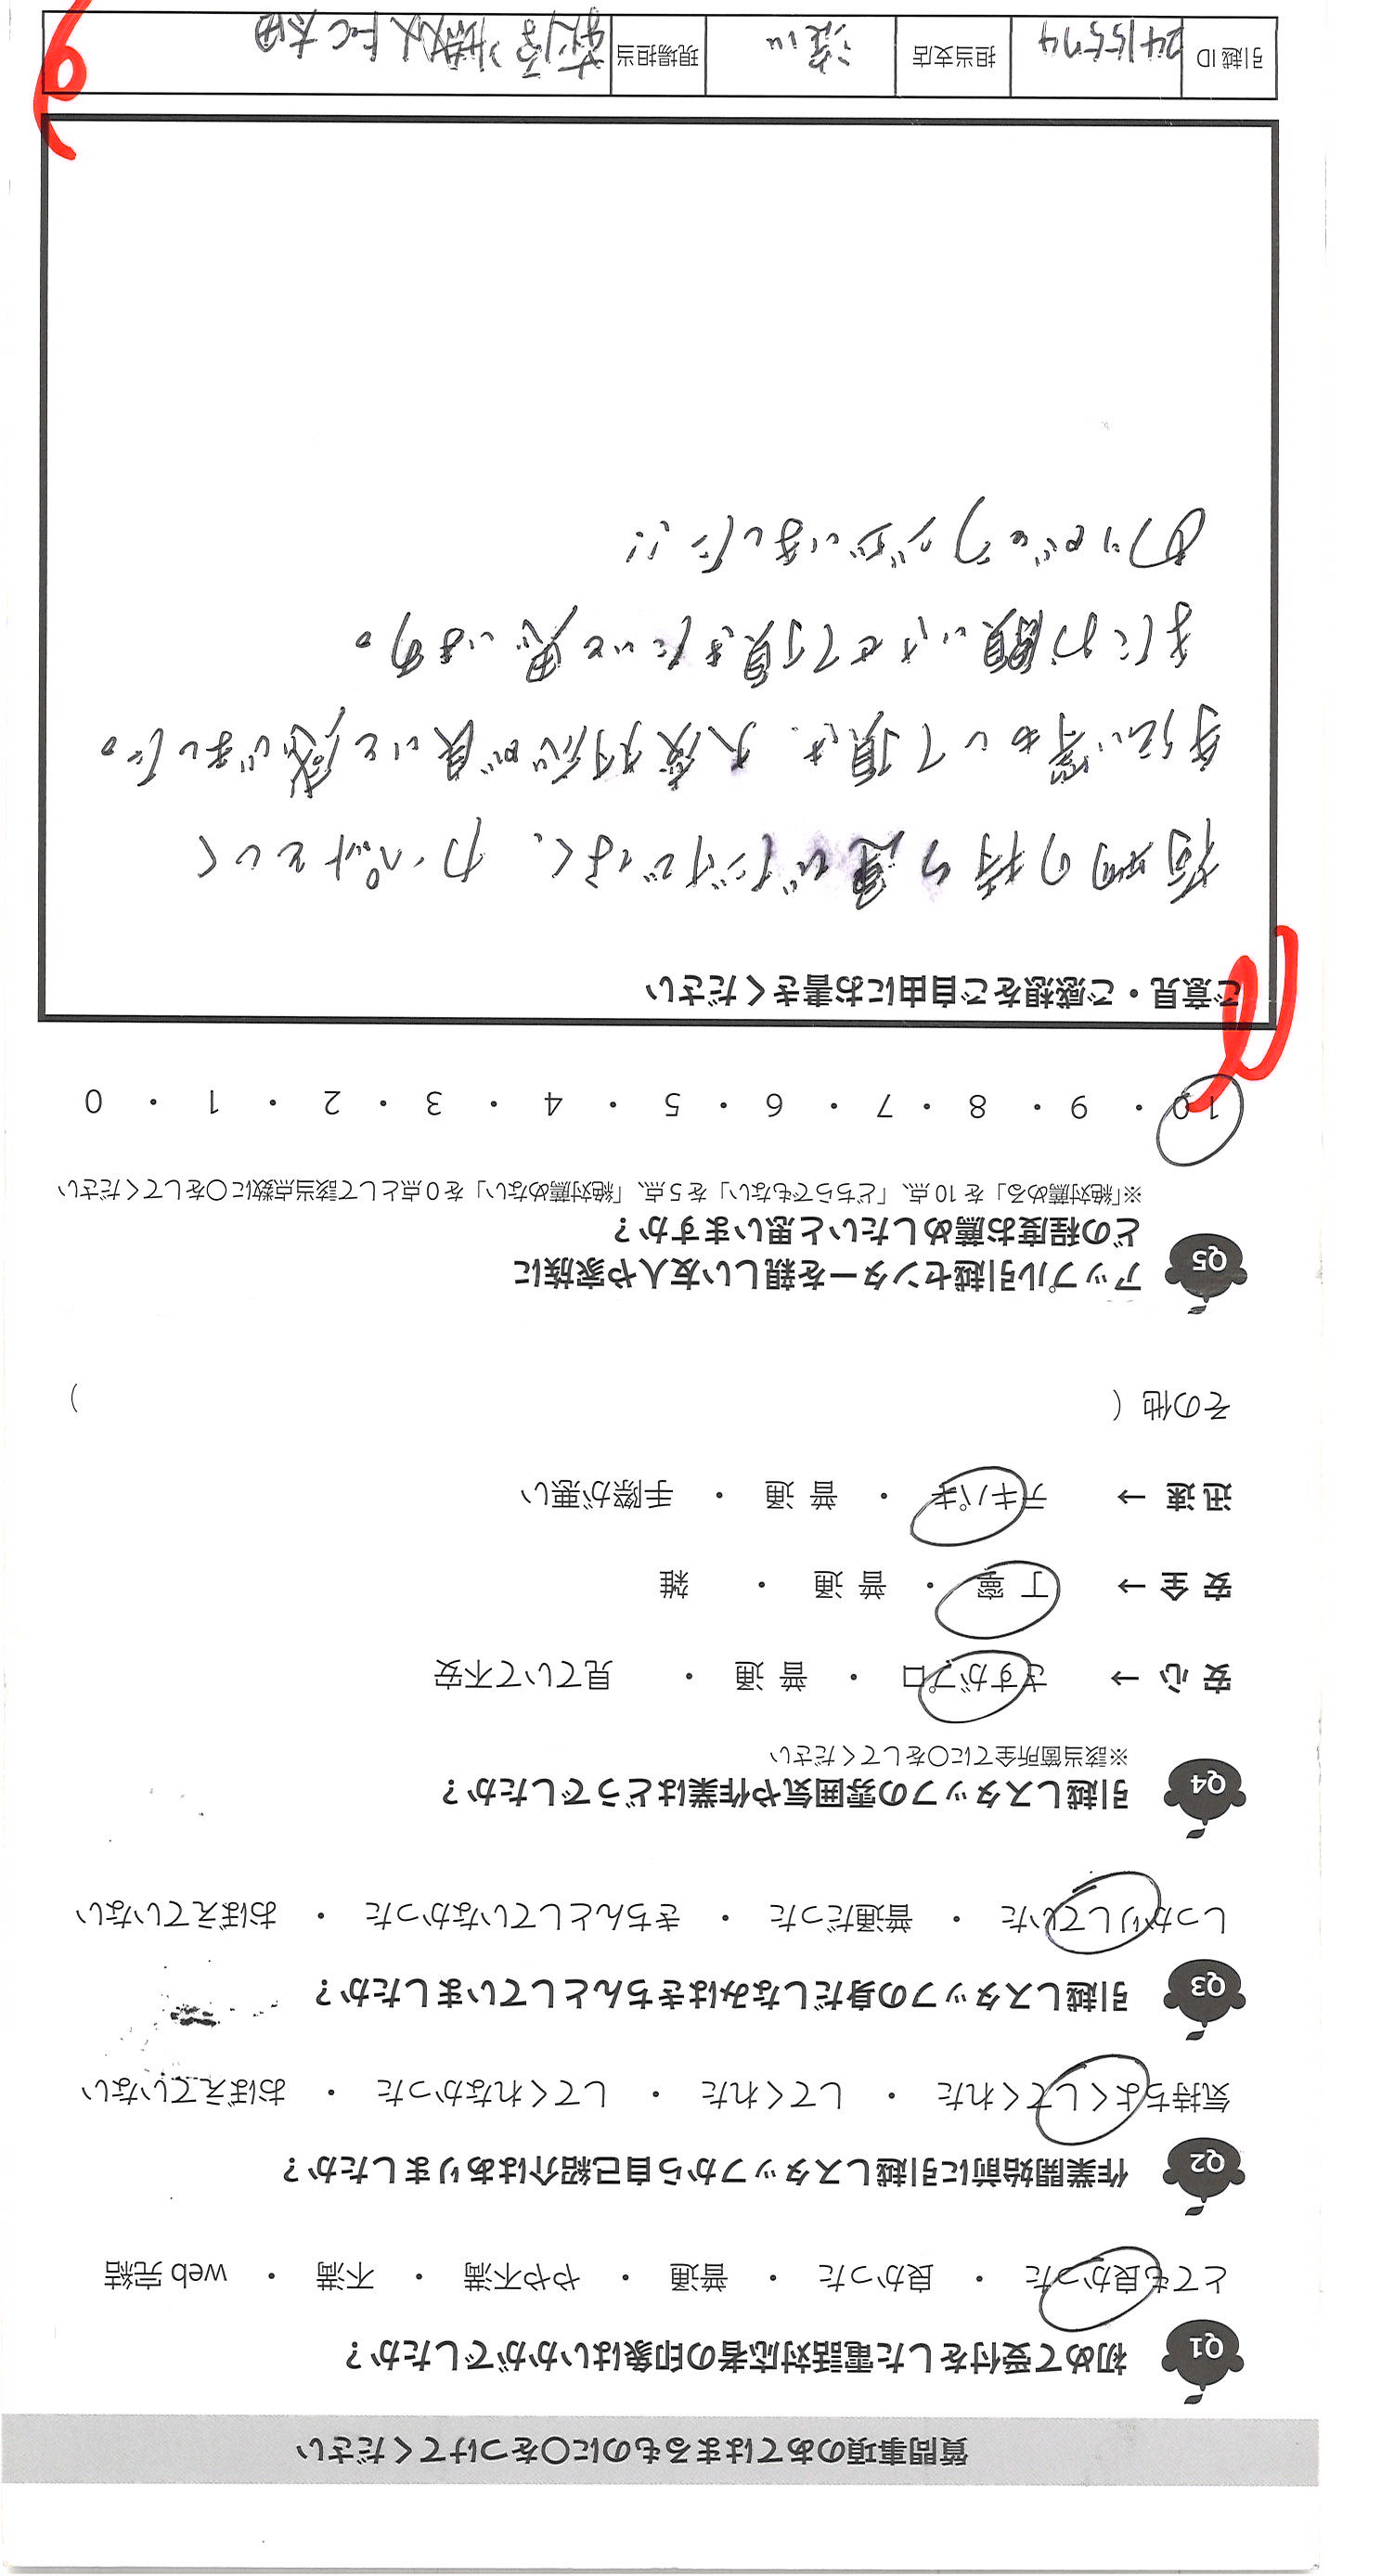 質問事項のあてはまるものに〇をつけてください
Q1 初めて受付をした電話対応者の印象はいかがでしたか？
とても良かった ・ 良かった ・ 普通 ・ やや不満 ・ 不満 ・ web 完結
Q2 作業開始前に引越しスタッフから自己紹介はありましたか？
気持ちよくしてくれた ・ してくれた ・ してくれなかった ・ おぼえていない
Q3 引越しスタッフの身だしなみはきちんとしていましたか？
しっかりしていた ・ 普通だった ・ きちんとしていなかった ・ おぼえていない
Q4 引越しスタッフの雰囲気や作業はどうでしたか？
※該当箇所全てに〇をしてください
安 心 → さすがプロ ・ 普 通 ・ 見ていて不安
安 全 → 丁 寧 ・ 普 通 ・ 雑
迅 速 → テキパキ ・ 普 通 ・ 手際が悪い
その他 ( )
Q5 アップル引越センターを親しい友人や家族に
どの程度お薦めしたいと思いますか？
※「絶対薦める」を 10 点、「どちらでもない」を 5 点、「絶対薦めない」を 0 点として該当点数に〇をしてください
10 ・ 9 ・ 8 ・ 7 ・ 6 ・ 5 ・ 4 ・ 3 ・ 2 ・ 1 ・ 0
ご意見・ご感想をご自由にお書きください
荷物の持ち運びだけでなく、カーペットとしく
手伝い等もして頂き、大変対応が良いと感じました。
またお願いさせて頂きたいと思います。
ありがとうございました!!
引越 ID 2415574 担当支店 現場担当